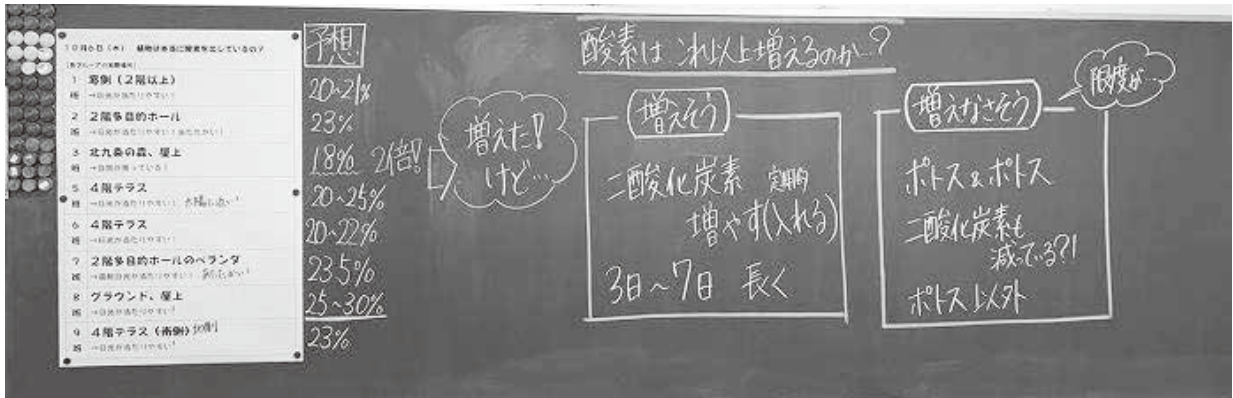 10月6日(水) 植物は本当に酸素を出しているの?
1 窓側(2階以上)
班 →日光が当たりやすい!
2 2階多目的ホール
班 →日光が当たりやすい!あたたかい!
3 北九条の森、屋上
班
5 4階テラス
班 →日光が当たりやすい! 太陽に近い!
6 4階テラス
班 →日光が当たりやすい!
7 2階多目的ホールのベランダ
班 あたたかい!
8 グラウンド、屋上
班 →日光が当たりやすい!
9 4階テラス(南側)
班 →日光が当たりやすい!
予想
20~21%
23%
18% 2倍!
20~25%
20~22%
23.5%
25~30%
23%
増えた!
けど…
酸素はこれ以上増えるのか…?
増えそう
二酸化炭素 定期的
増やす(入れる)
3日~7日 長く
増えなさそう
限度が…
ポトス&ポトス
二酸化炭素も
減っている?!
ポトス以外